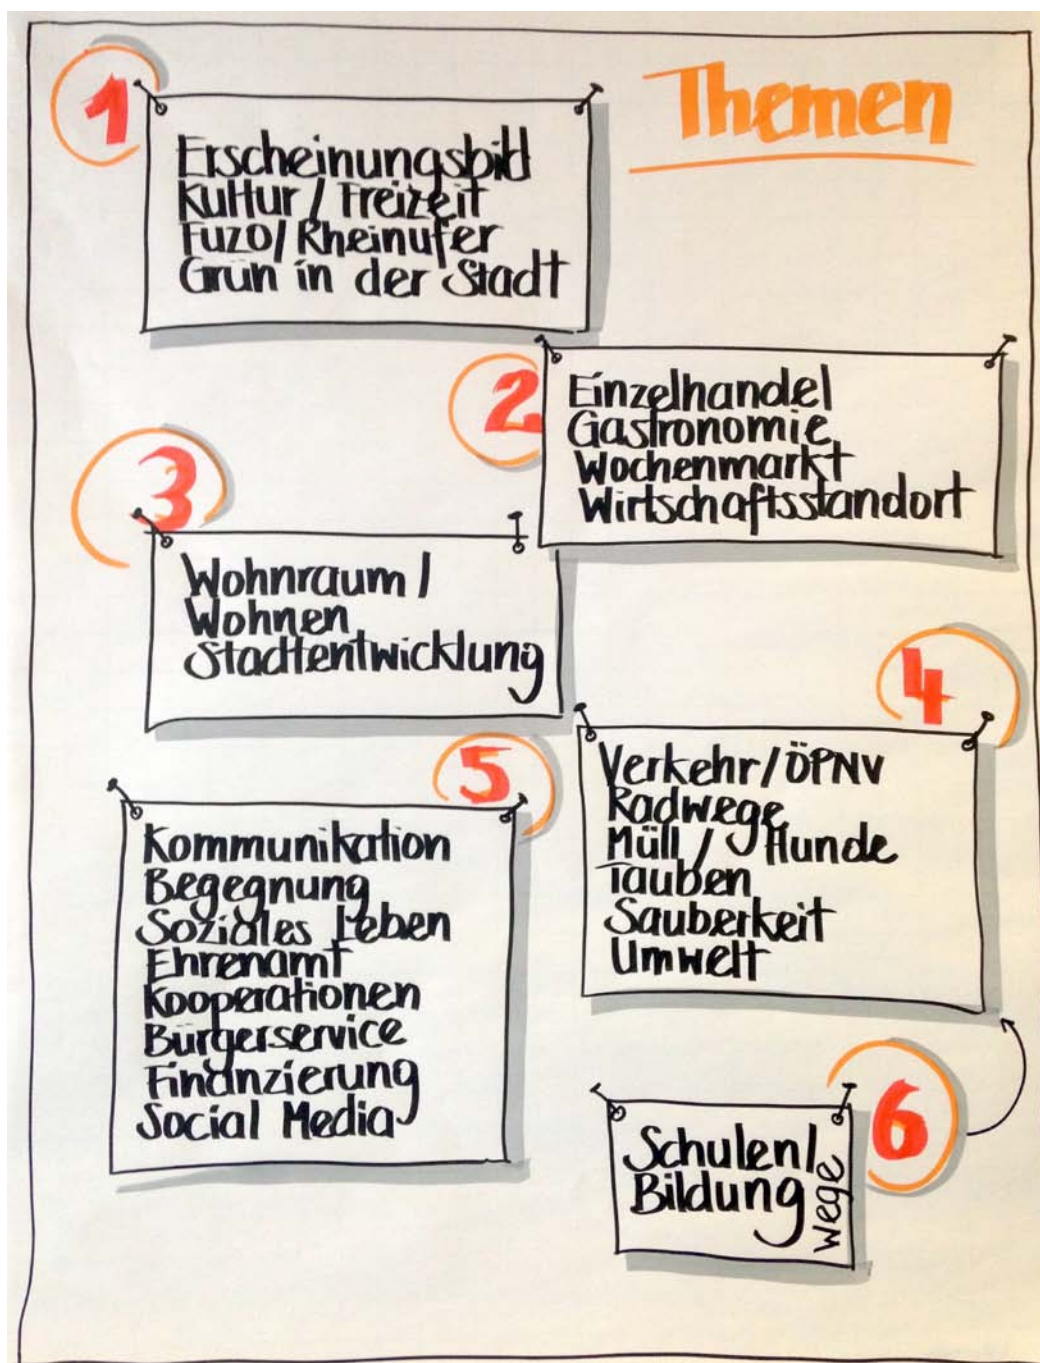 Themen
1
Erscheinungsbild
Kultur / Freizeit
Fuzo/ Rheinufer
Grün in der Stadt
2
Einzelhandel
Gastronomie
Wochenmarkt
Wirtschaftsstandort
3
Wohnraum /
Wohnen
Stadtentwicklung
4
Verkehr/ÖPNV
Radwege
Müll / Hunde
Tauben
Sauberkeit
Umwelt
5
Kommunikation
Begegnung
Soziales Leben
Ehrenamt
Kooperationen
Bürgerservice
Finanzierung
Social Media
6
Schulen/
Bildung
wege